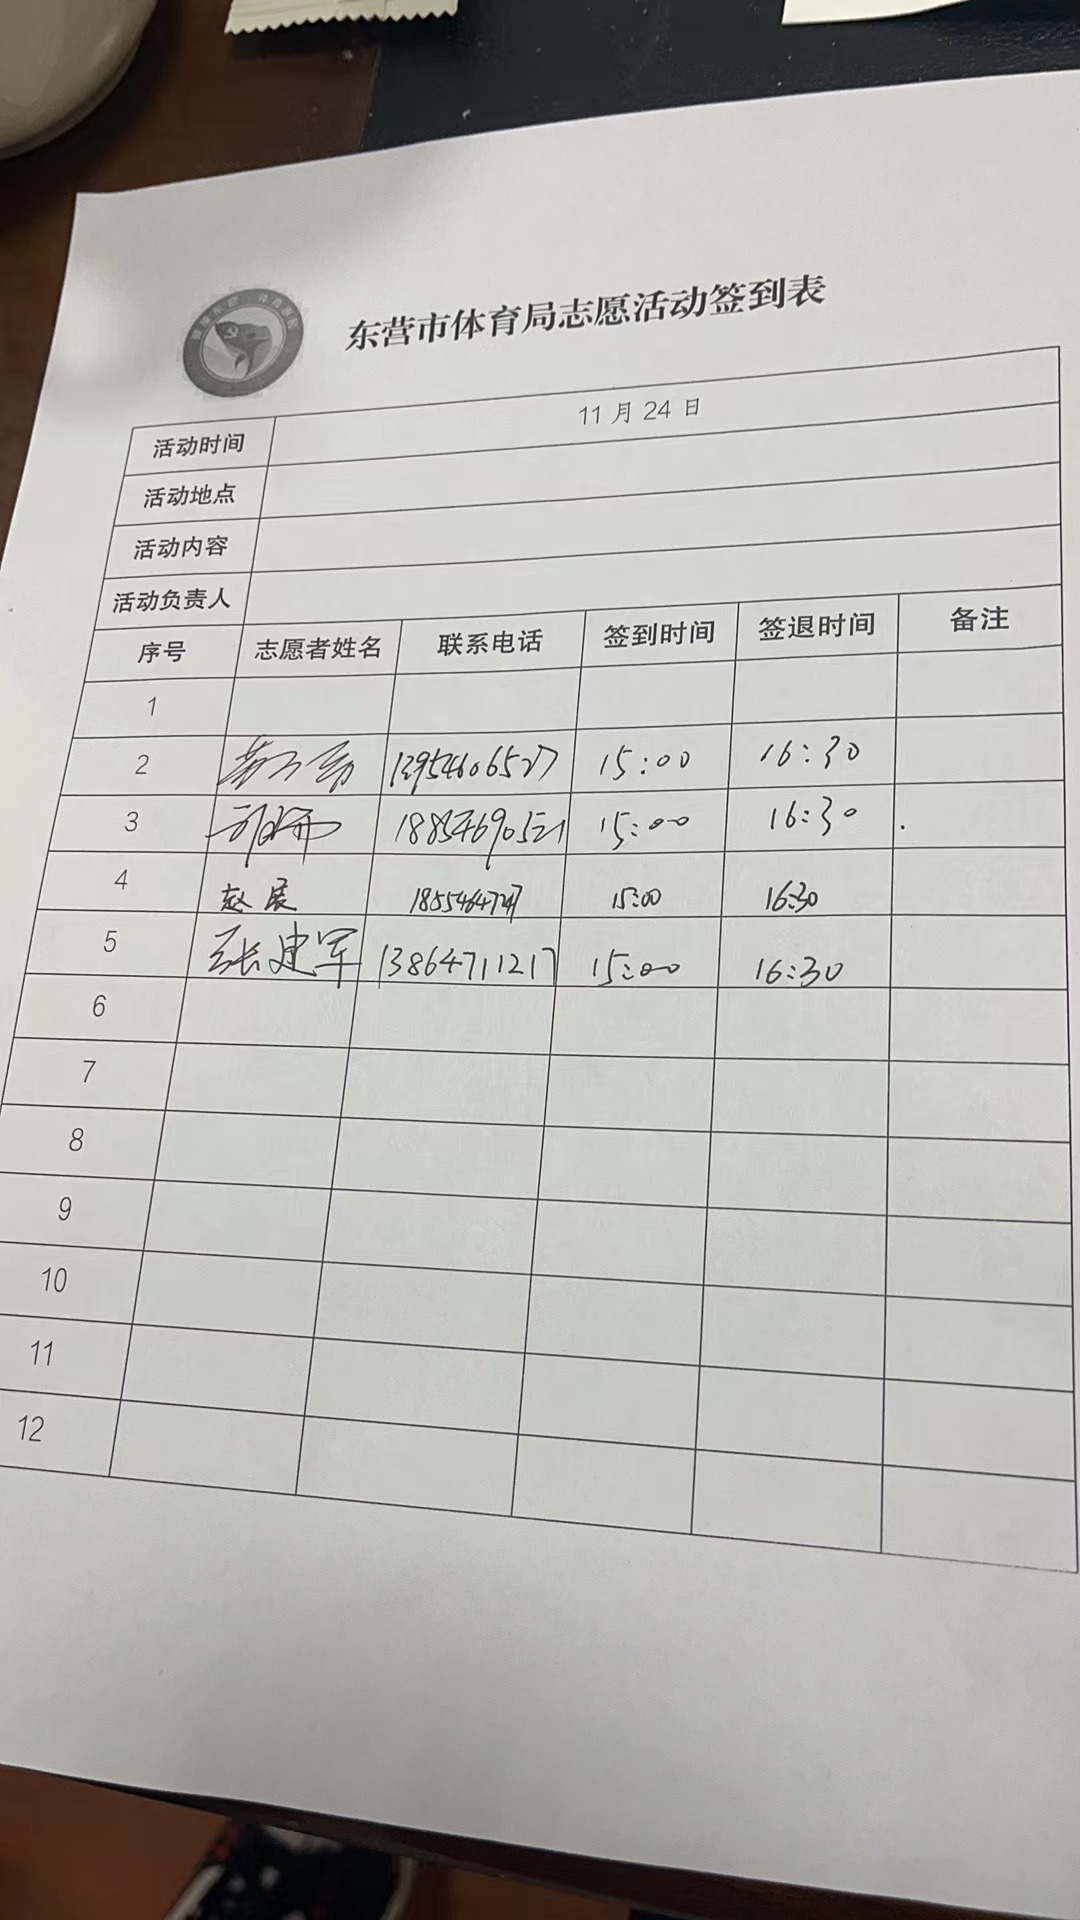 东营市体育局志愿活动签到表
活动时间 11月24日
活动地点
活动内容
活动负责人
序号 志愿者姓名 联系电话 签到时间 签退时间 备注
1
2 13954606527 15:00 16:30
3 18854690521 15:00 16:30
4 赵展 15:00 16:30
5 张建军 13864711217 15:00 16:30
6
7
8
9
10
11
12